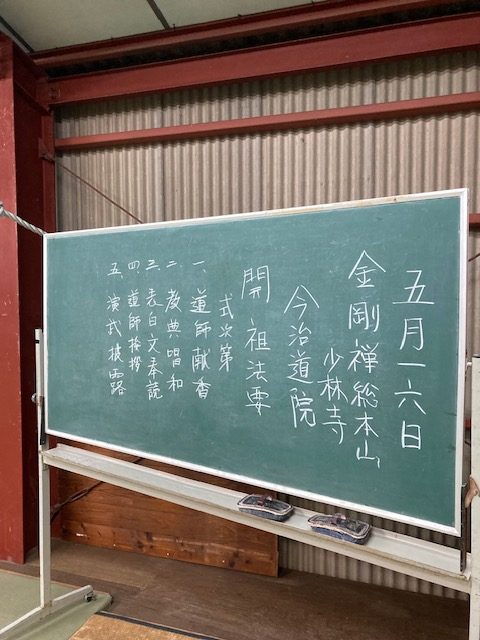 五月一六日
金剛禅総本山
少林寺
今治道院
開祖法要
式次第
一、導師献香
二、教典唱和
三、表白文奉読
四、導師挨拶
五、演武披露